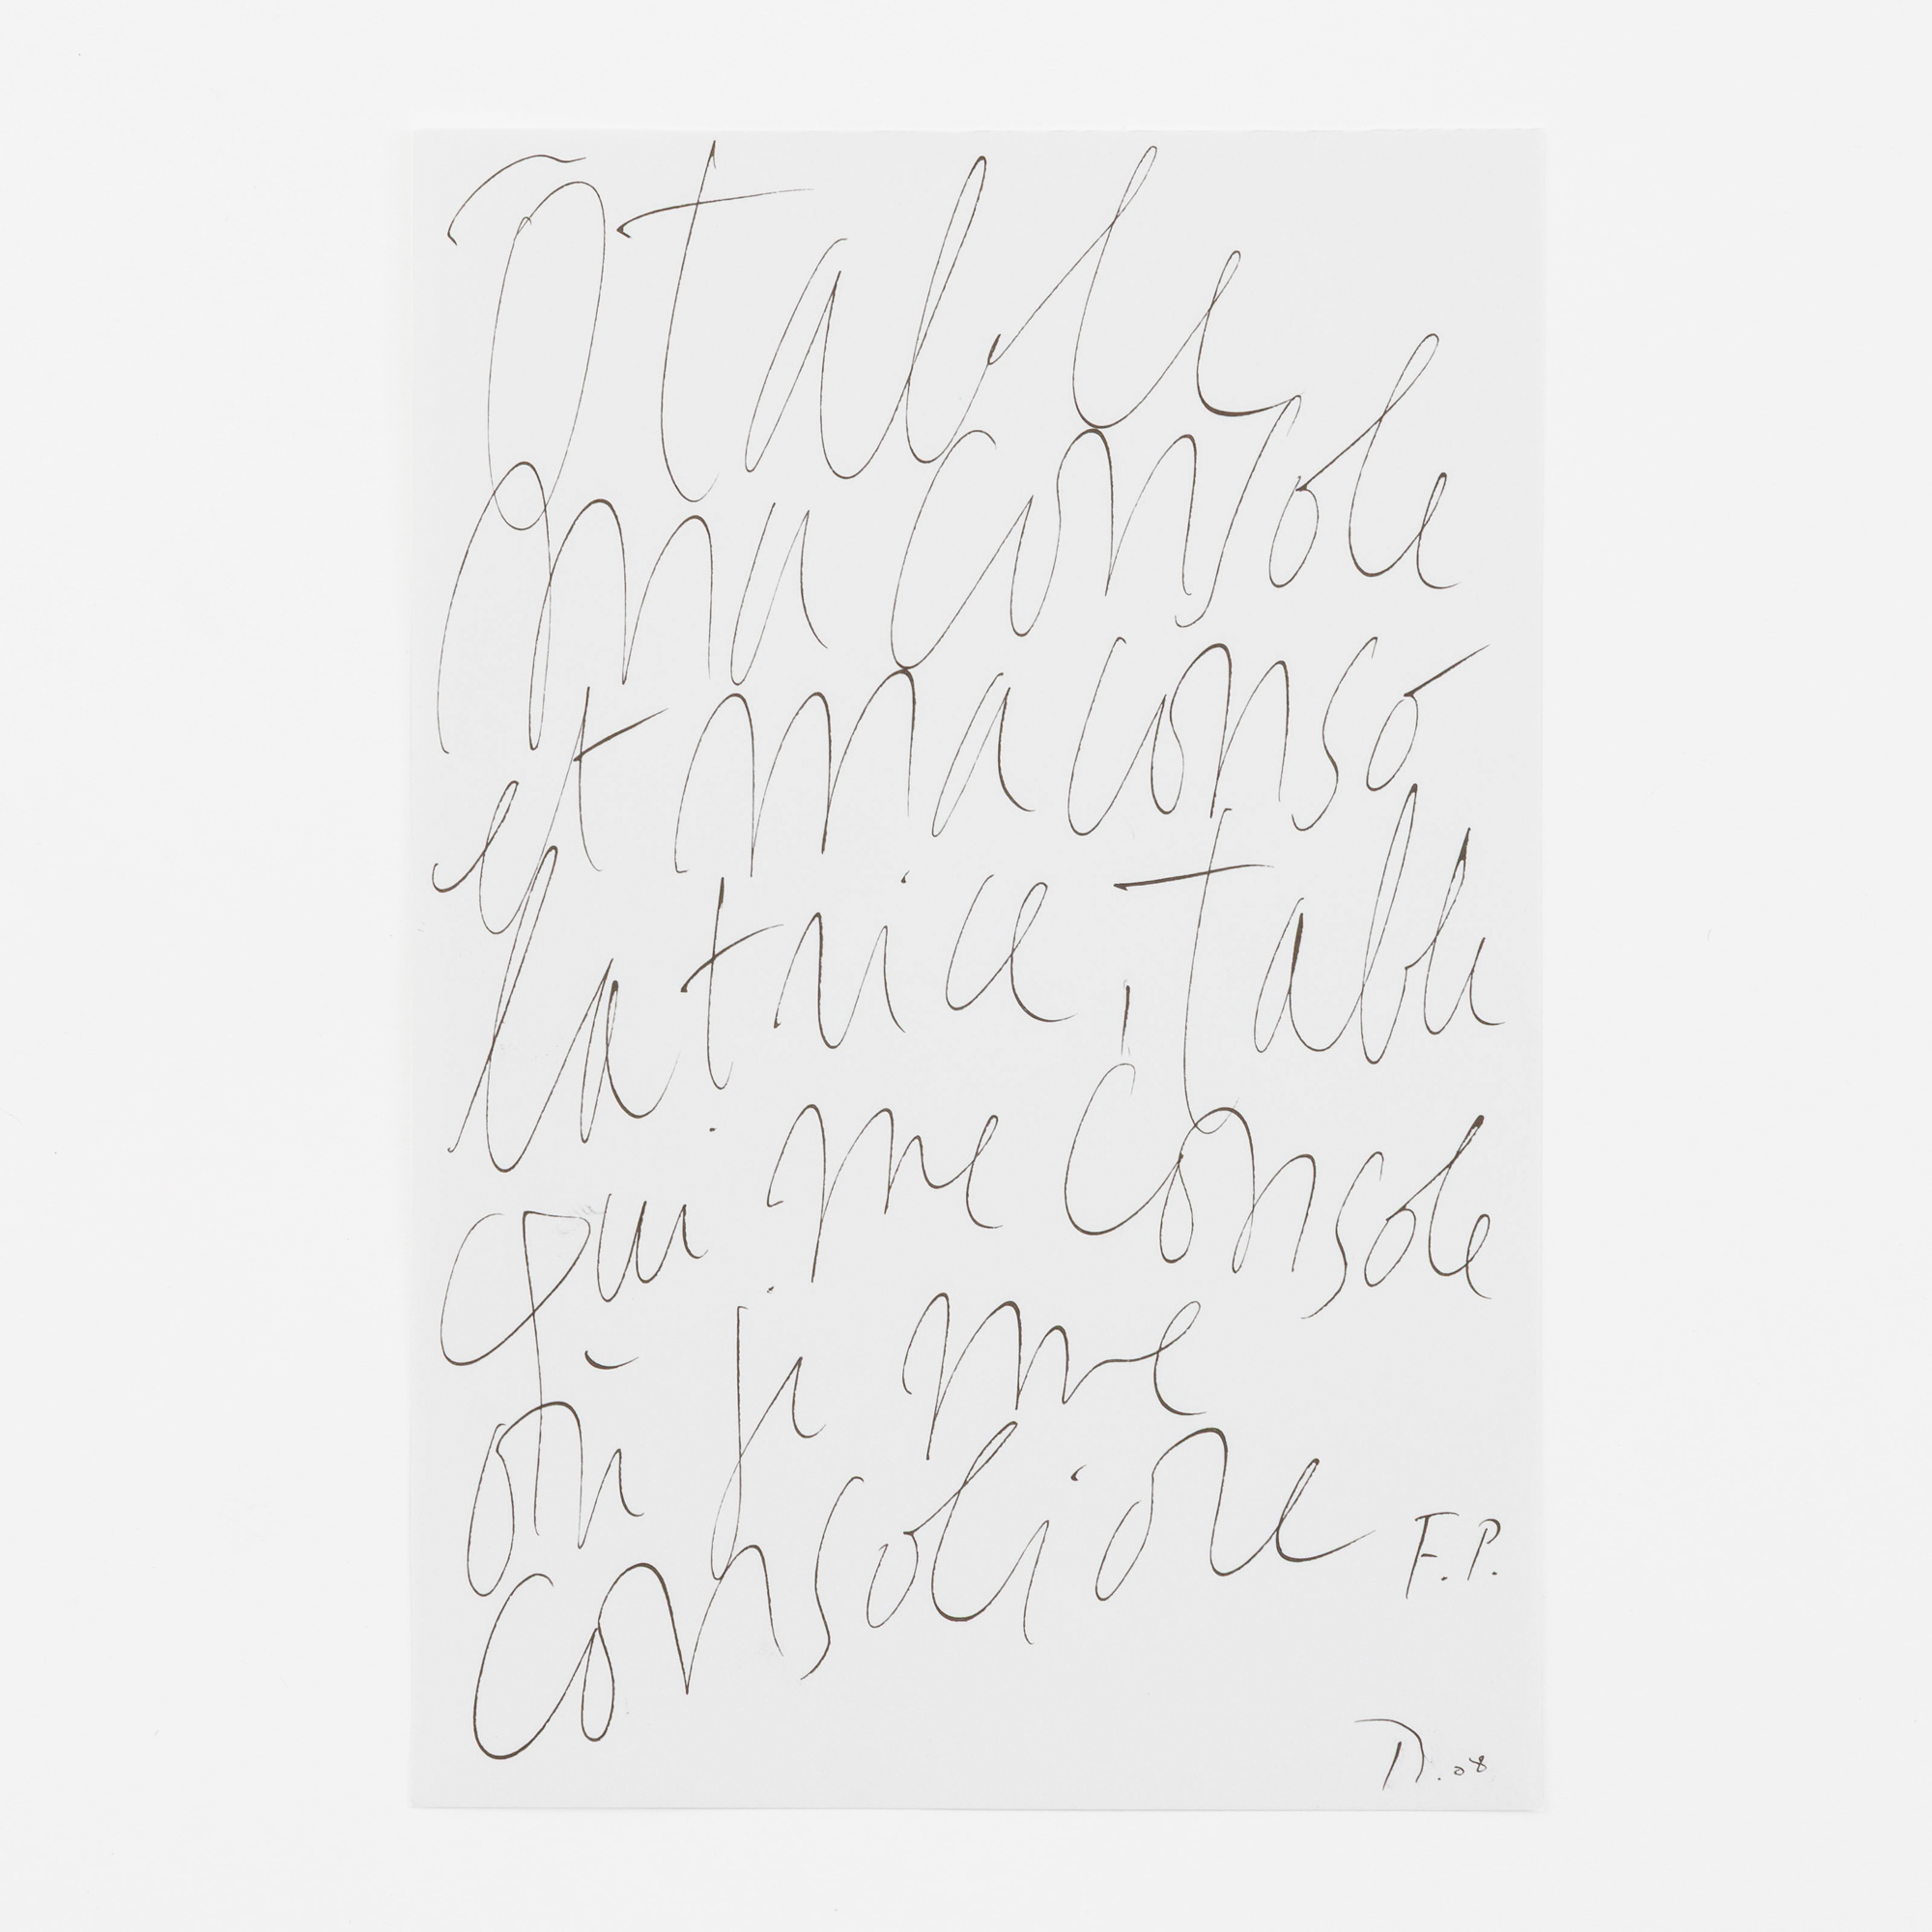 Ô table
ma console
et ma conso
latrice, table
qui me console
où je me
consolide
F.P.
D.08